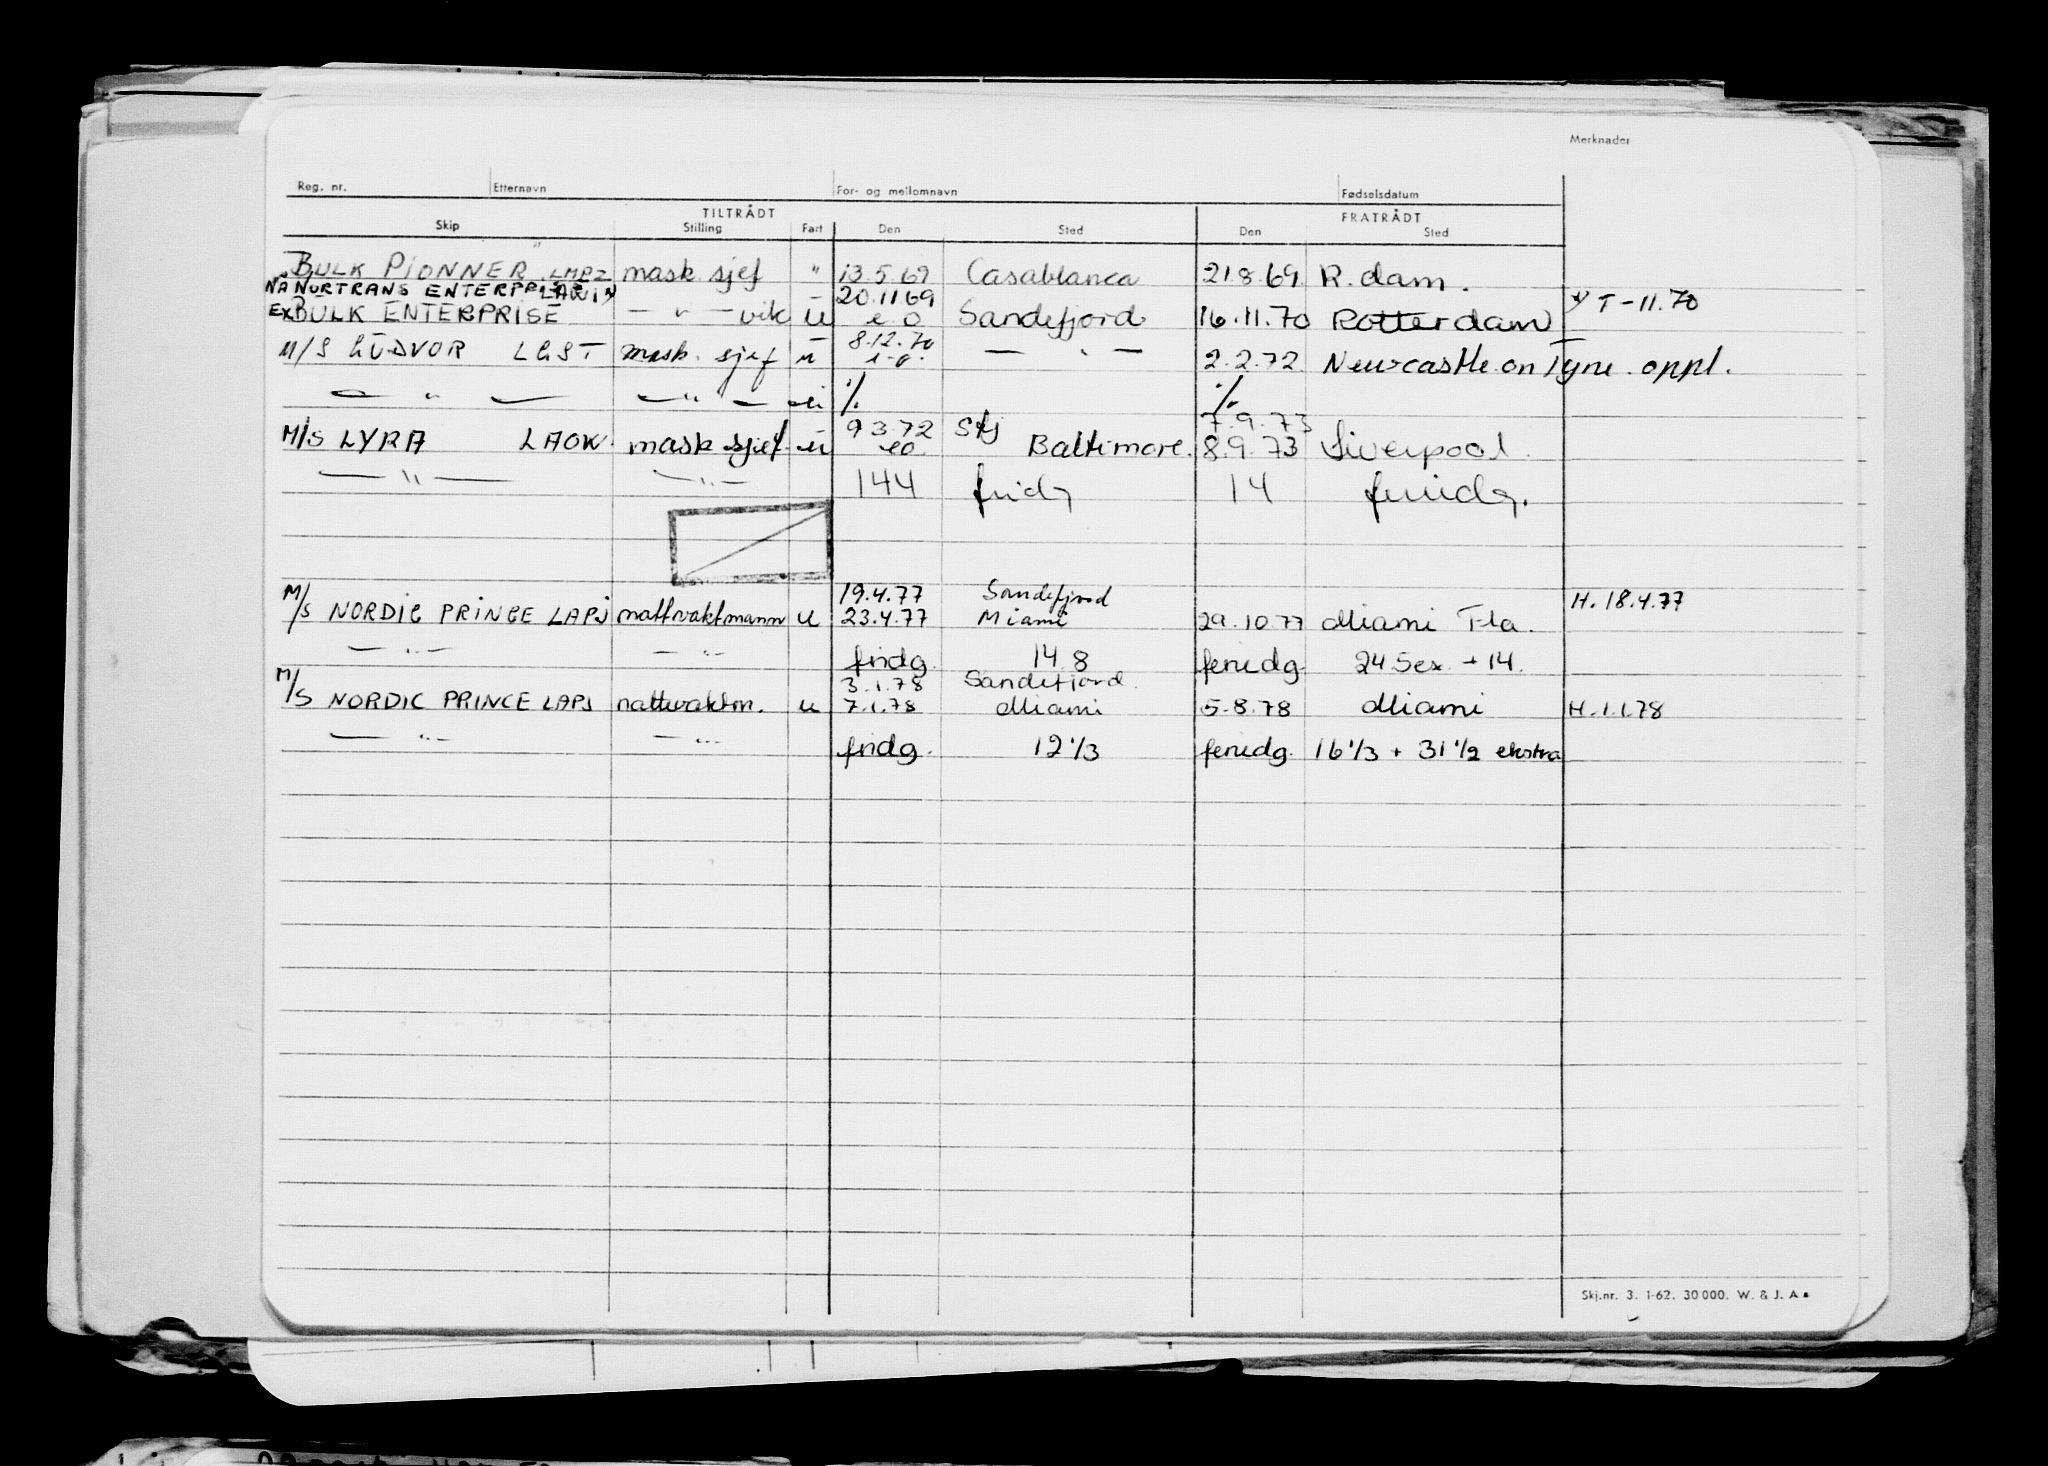 Merknader
Reg. nr. Etternavn For- og mellomnavn Fødselsdatum
TILTRÅDT FRATRÅDT
Skip Stilling Fart Den Sted Den Sted
BULK PIONNER LMPZ mask. sjef " 13.5.69 Casablanca 21.8.69 R. dam.
NA NORTRANS ENTERPRISE 20.11.69
Ex BULK ENTERPRISE — " — vik u e.o Sandefjord 16.11.70 Rotterdam T-11.70
8.12.70
M/S GUDVOR LGST mask. sjef u e.o. — " — 2.2.72 Newcastle on Tyne. oppl.
— " — — " — u ./. ./.
9.3.72 7.9.73
M/S LYRA LAOW mask sjef u eo. Baltimore. 8.9.73 Liverpool.
— " — — " — 144 fridg 14 feriedg.
19.4.77 Sandefjord
M/S NORDIC PRINCE LAPJ nattvaktmann u 23.4.77 Miami 29.10.77 Miami Fla. H. 18.4.77
— " — — " — fridg. 14.8 feriedg. 24.5 ex. + 14.
3.1.78 Sandefjord.
M/S NORDIC PRINCE LAPJ nattvaktm. u 7.1.78 Miami 5.8.78 Miami H.1.1.78
— " — — " — fridg. 12 1/3 feriedg. 16 1/3 + 31 1/2 ekstra
Skj.nr. 3. 1-62. 30 000. W. & J. A s